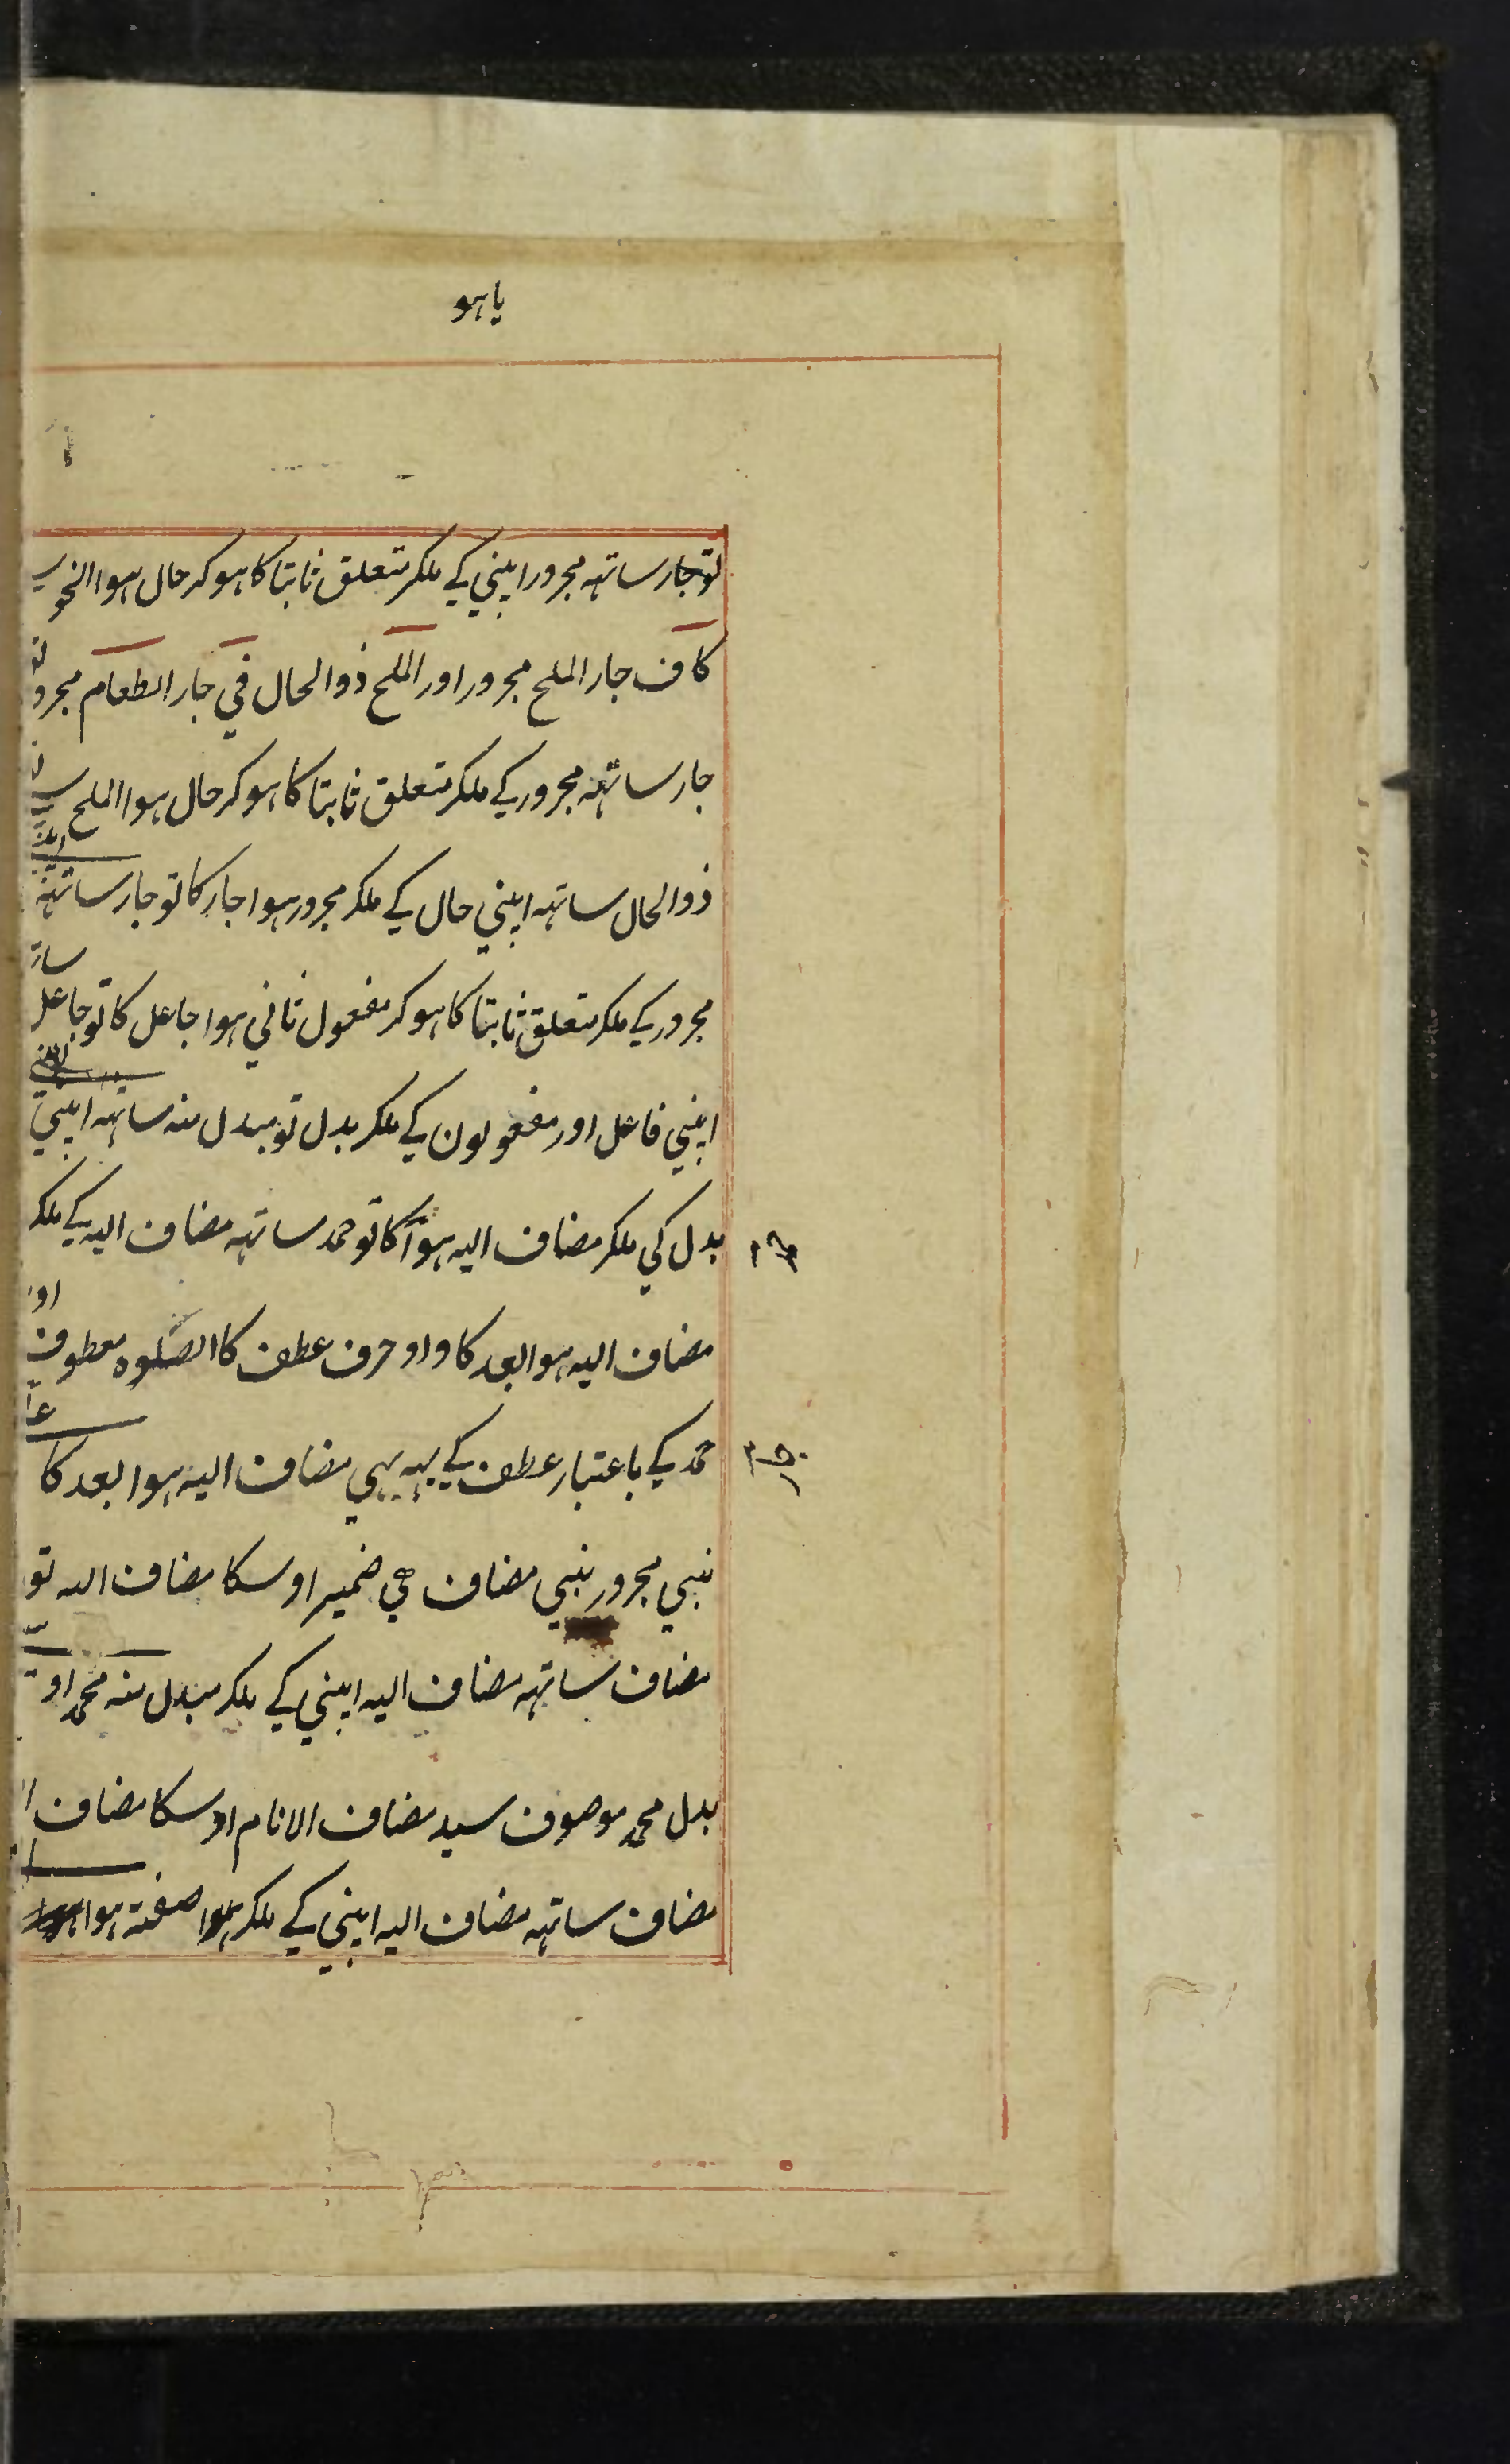 یاهو
توجار ساتهه مجرور اپنی کے ملکر متعلق ثابتا کا ہوکر حال ہوا النحو
کاف جار الملح مجرور اور الملح ذوالحال فی جار الطعام مجرور
جار ساتهه مجرور کے ملکر متعلق ثابتا کا ہوکر حال ہوا الملح
ذوالحال ساتهه اپنی حال کے ملکر مجرور ہوا جار کا توجار ساتهه
مجرور کے ملکر متعلق ثابتا کا ہوکر مفعول ثانی ہوا جاعل کا توجاعل
اپنی فاعل اور مفعولون کے ملکر بدل تو مبدل منه ساتهه اپنی
بدل کی ملکر مضاف الیه ہوا کا توحمد ساتهه مضاف الیه کے ملکر
مضاف الیه ہوا بعد کا واو حرف عطف کا الصلوه معطوف
حمد کے باعتبار عطف کے یہه بہی مضاف الیه ہوا بعد کا
نبی مجرور نبی مضاف ہی ضمیر اوسکا مضاف الیه تو
مضاف ساتهه مضاف الیه اپنی کے ملکر مبدل منه محمد او
بدل محمد موصوف سید مضاف الانام اوسکا مضاف
مضاف ساتهه مضاف الیه اپنی کے ملکر صفته ہوا